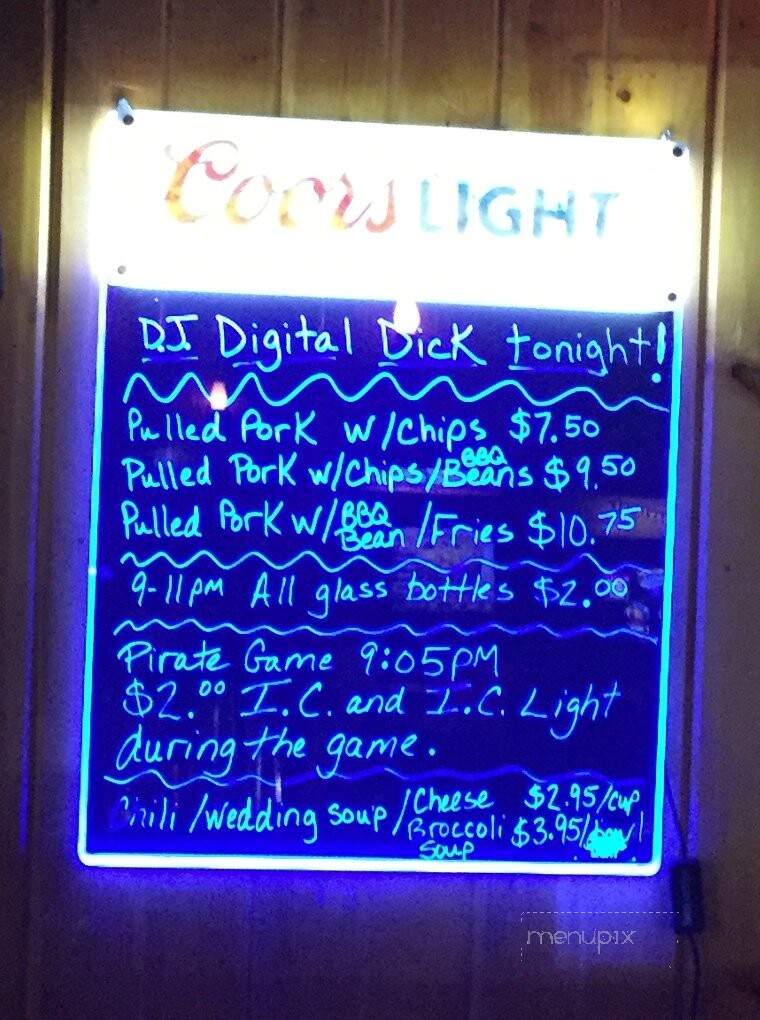 Coors LIGHT
D.J. Digital Dick tonight!
Pulled Pork w/chips $7.50
Pulled Pork w/Chips/BBQ Beans $9.50
Pulled Pork w/BBQ Bean/Fries $10.75
9-11pm All glass bottles $2.00
Pirate Game 9:05PM
$2.00 I.C. and I.C. Light
during the game.
Chili/wedding soup/Cheese Broccoli Soup $2.95/cup $3.95/bowl
menupix